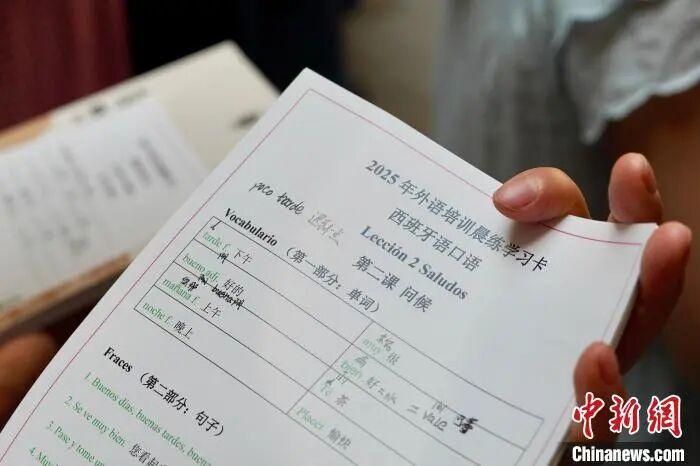 2025年外语培训晨练学习卡
西班牙语口语
Lección 2 Saludos
第二课 问候
poco tarde
Vocabulario (第一部分:单词)
tarde f. 下午
bueno adj. 好的
mañana f. 上午
noche f. 晚上
muy 很
bien 好
茶
Placer 愉快
Fraces (第二部分:句子)
1. Buenos días, buenas tardes, buen
2. Se ve muy bien. 您看起
3. Pase y tome
4. Muy
中新网
Chinanews.com